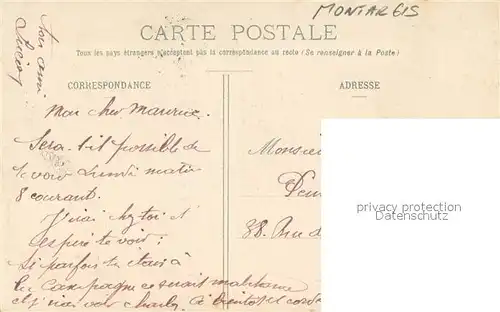 MONTARGIS
CARTE POSTALE
Tous les pays étrangers n'acceptent pas la correspondance au recto (Se renseigner à la Poste)
CORRESPONDANCE
ADRESSE
Ton ami
Lucien
Mon cher Maurice.
Sera-t-il possible de
te voir Lundi matin
8 courant.
J'irai chez toi et
espère te voir :
si parfois tu étais à
la campagne ce serait
et j'irai voir Charles. à bientôt
Monsieur
38. Rue d
privacy protection
Datenschutz